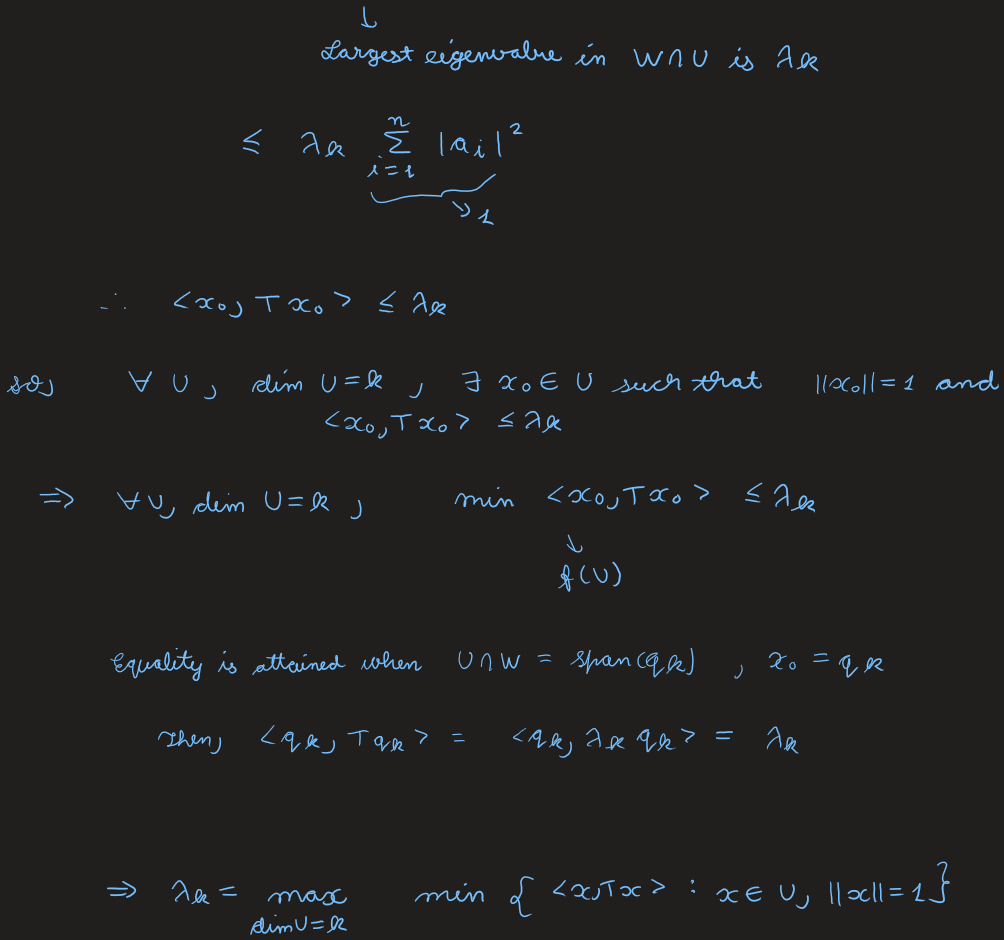 ↓
Largest eigenvalue in W∩U is λk
≤ λk Σ_{i=1}^{n} |ai|²
↘ 1
∴ <x₀, Tx₀> ≤ λk
so, ∀ U, dim U=k, ∃ x₀ ∈ U such that ||x₀||=1 and
<x₀, Tx₀> ≤ λk
⇒ ∀U, dim U=k, min <x₀, Tx₀> ≤ λk
↓
f(U)
Equality is attained when U∩W = span(qk), x₀ = qk
Then, <qk, Tqk> = <qk, λk qk> = λk
⇒ λk = max min { <x,Tx> : x ∈ U, ||x||=1}
dimU=k